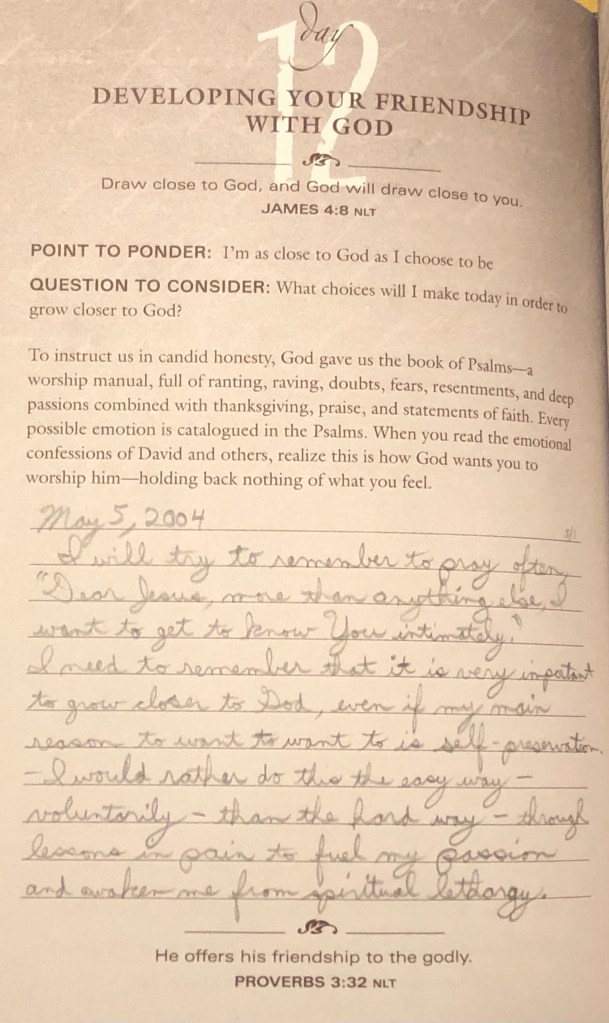 day
12
DEVELOPING YOUR FRIENDSHIP
WITH GOD
Draw close to God, and God will draw close to you.
JAMES 4:8 NLT
POINT TO PONDER: I'm as close to God as I choose to be
QUESTION TO CONSIDER: What choices will I make today in order to
grow closer to God?
To instruct us in candid honesty, God gave us the book of Psalms—a
worship manual, full of ranting, raving, doubts, fears, resentments, and deep
passions combined with thanksgiving, praise, and statements of faith. Every
possible emotion is catalogued in the Psalms. When you read the emotional
confessions of David and others, realize this is how God wants you to
worship him—holding back nothing of what you feel.
May 5, 2004
I will try to remember to pray often,
"Dear Jesus, more than anything else, I
want to get to know You intimately."
I need to remember that it is very impotant
to grow closer to God, even if my main
reason to want to want to is self-preservation.
- I would rather do this the easy way -
voluntarily - than the hard way - through
lessons in pain to fuel my passion
and awaken me from spiritual lethargy.
He offers his friendship to the godly.
PROVERBS 3:32 NLT